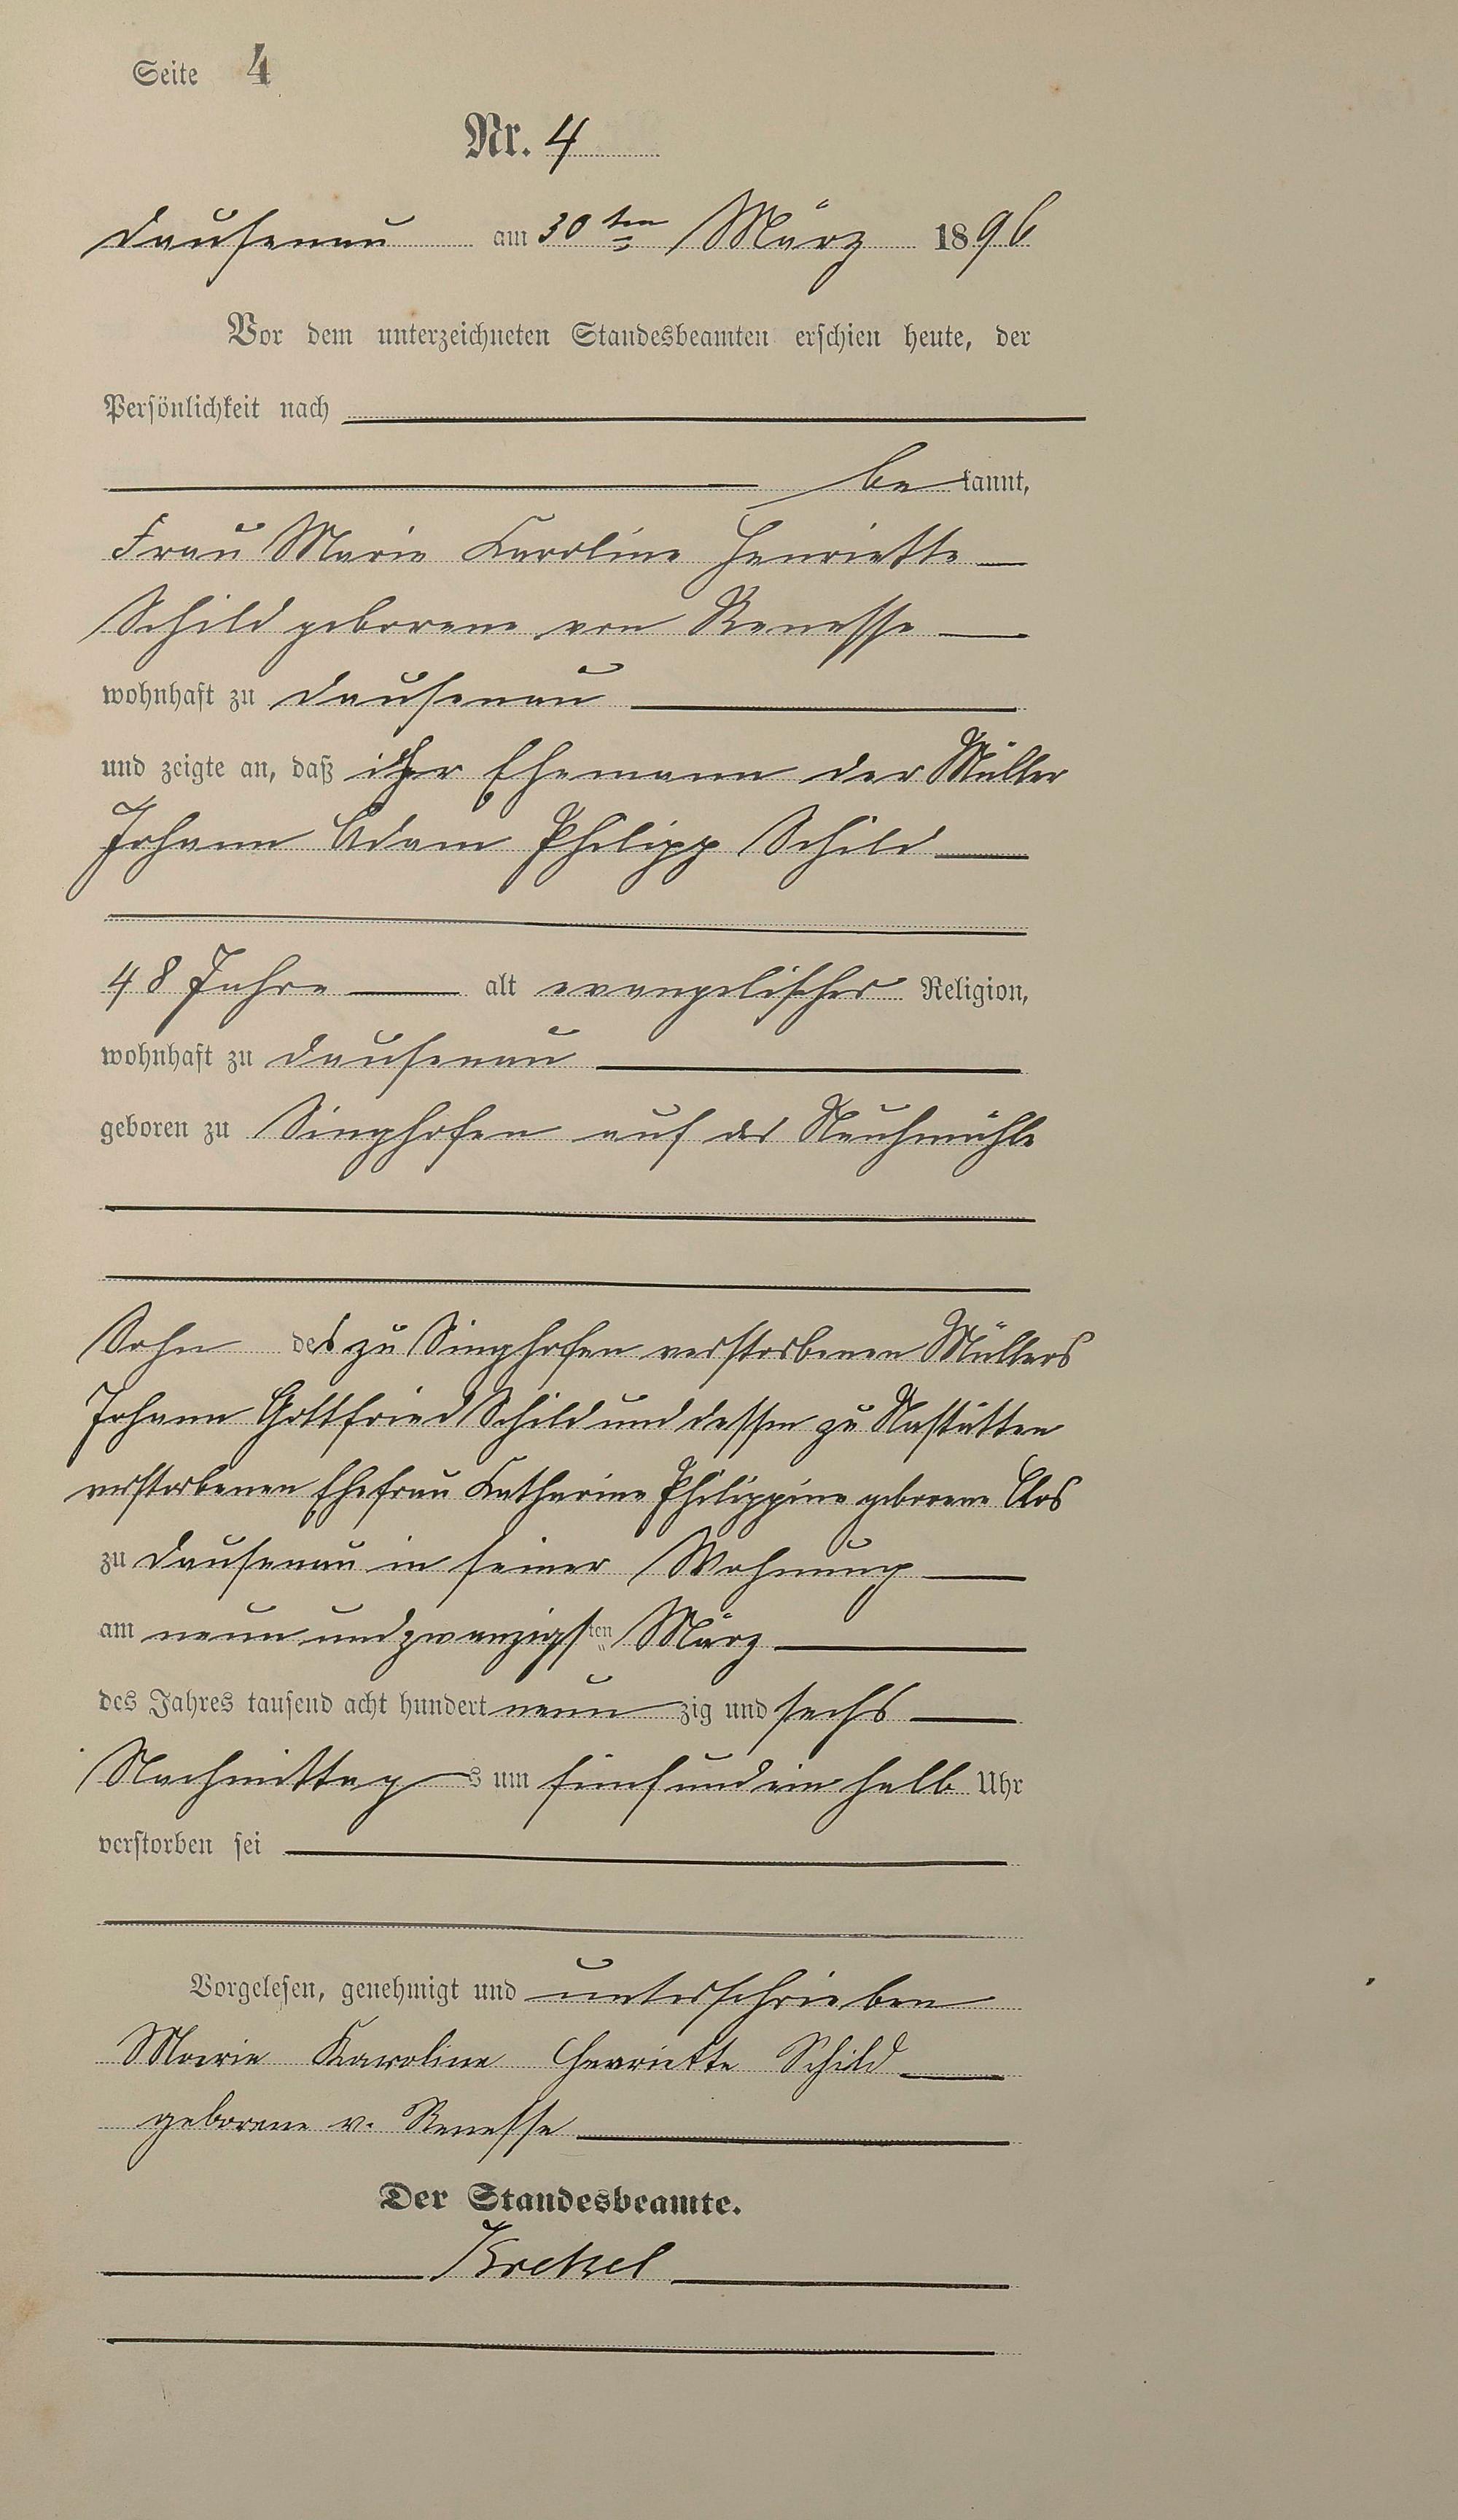 Seite 4
Nr. 4
Dausenau am 30ten März 1896
Vor dem unterzeichneten Standesbeamten erschien heute, der
Persönlichkeit nach
be kannt,
Frau Marie Karoline Henriette
Schild geborene von Renesse
wohnhaft zu Dausenau
und zeigte an, daß ihr Ehemann der Müller
Johann Adam Philipp Schild
48 Jahre alt evangelischer Religion,
wohnhaft zu Dausenau
geboren zu Singhofen auf der Neuhmühle
Sohn des zu Singhofen verstorbenen Müllers
Johann Gottfried Schild und dessen zu Nastätten
verstorbenen Ehefrau Katharine Philippine geborene Clos
zu Dausenau in seiner Wohnung
am neun und zwanzigsten März
des Jahres tausend acht hundert neun zig und sechs
Nachmittag s um fünf und ein halb Uhr
verstorben sei
Vorgelesen, genehmigt und unterschrieben
Marie Karoline Henriette Schild
geborene v. Renesse
Der Standesbeamte.